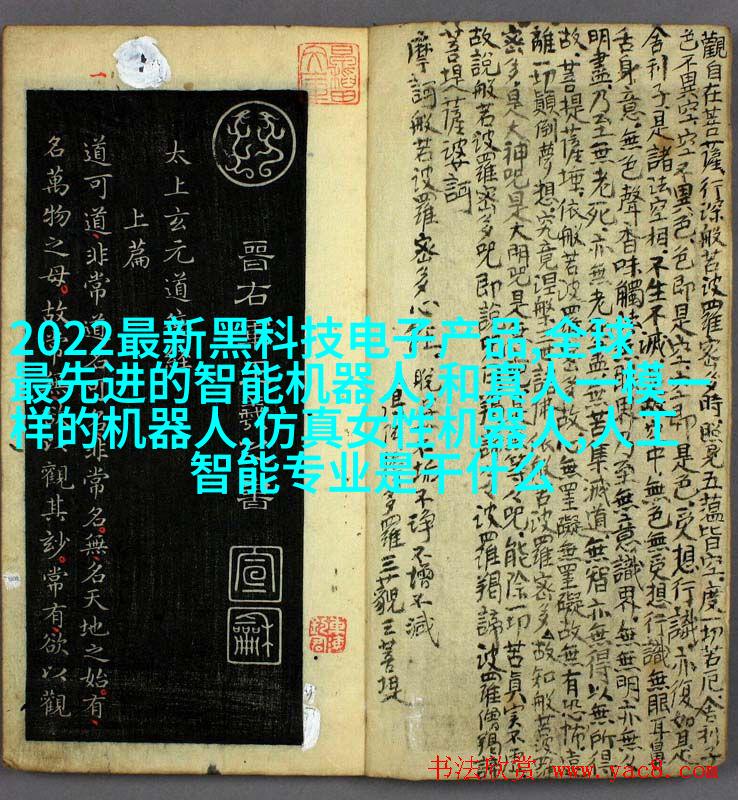 2022最新黑科技电子产品,全球
最先进的智能机器人,和真人一模一
样的机器人,仿真女性机器人,人工
智能专业是干什么
觀自在菩薩行深般若波羅密多時照見五蘊皆空度一切苦厄舍利子
色不異空空不異色色即是空空即是色受想行識亦復如是
舍利子是諸法空相不生不滅中無色無受想行識無眼耳鼻
舌身意無色聲香味觸界乃至無意識界無無明亦無
明盡乃至無老死亦無老盡無苦集滅道無智亦無得以無所得
故菩提薩埵依般若波羅心無罣礙無罣礙故無有恐怖遠
離一切顛倒夢想究竟涅槃三世諸佛依般若波羅密多故知般若波羅
密多是大神咒是大明咒是無咒能除一切苦真實不虛
故說般若波羅密多咒即說波羅羯諦波羅僧羯諦
菩提薩婆訶
摩訶般若波羅密多心經
不垢不淨不增不減
多羅三藐三菩提
晉右軍書
太上玄元道
上篇
道可道非常道名非常名無名天地之始有
名萬物之母故常觀其妙常有欲以觀
宣
龢
书法欣赏 www.yac8.com